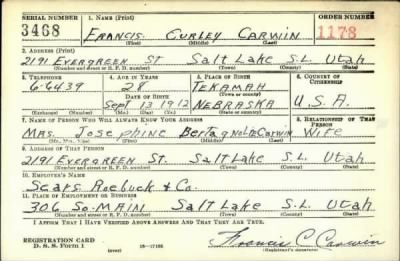 SERIAL NUMBER 1. NAME (Print) ORDER NUMBER
3468 FRANCIS CURLEY CARWIN 1178
(First) (Middle) (Last)
2. ADDRESS (Print)
2191 EVERGREEN ST SALT LAKE S.L. UTAH
(Number and street or R. F. D. number) (Town) (County) (State)
3. TELEPHONE 4. AGE IN YEARS 5. PLACE OF BIRTH 6. COUNTRY OF CITIZENSHIP
6-6439 28 TEKAMAH
DATE OF BIRTH (Town or county)
Sept 13 1912 NEBRASKA U.S.A.
(Exchange) (Number) (Mo.) (Day) (Yr.) (State or country)
7. NAME OF PERSON WHO WILL ALWAYS KNOW YOUR ADDRESS 8. RELATIONSHIP OF THAT PERSON
MRS. Josephine Carwin WIFE
(Mr., Mrs., Miss) (First) (Middle) (Last)
9. ADDRESS OF THAT PERSON
2191 EVERGREEN St. SALT LAKE S.L. Utah
(Number and street or R. F. D. number) (Town) (County) (State)
10. EMPLOYER'S NAME
Sears Roebuck & Co.
11. PLACE OF EMPLOYMENT OR BUSINESS
306 So. MAIN SALT LAKE S.L. UTAH
(Number and street or R. F. D. number) (Town) (County) (State)
I AFFIRM THAT I HAVE VERIFIED ABOVE ANSWERS AND THAT THEY ARE TRUE.
REGISTRATION CARD
D. S. S. FORM 1 (over) 16—17105 Francis C. Carwin
(Registrant's signature)